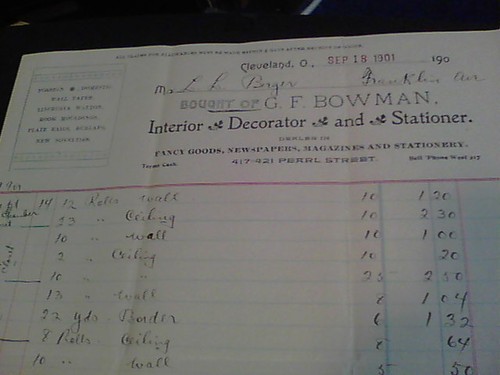 ALL CLAIMS FOR
Cleveland, O., SEP 18 1901 190
M L L Franklin Ave
BOUGHT OF G. F. BOWMAN,
Interior Decorator and Stationer.
DEALER IN
FANCY GOODS, NEWSPAPERS, MAGAZINES AND STATIONERY.
Terms Cash. 417-421 PEARL STREET. Bell 'Phone West 217
FOREIGN & DOMESTIC
WALL PAPER
LINCRUSTA WALTON,
ROOM MOULDINGS,
PLATE RAILS, BURLAPS,
NEW NOVELTIES.
14 12 Rolls Wall 10 1 20
23 " Ceiling 10 2 30
10 " Wall 10 1 00
2 " Ceiling 10 20
10 " " 25 2 50
13 " Wall 8 1 04
22 yds Border 6 1 32
8 Rolls Ceiling 8 64
10 " Wall 5 50